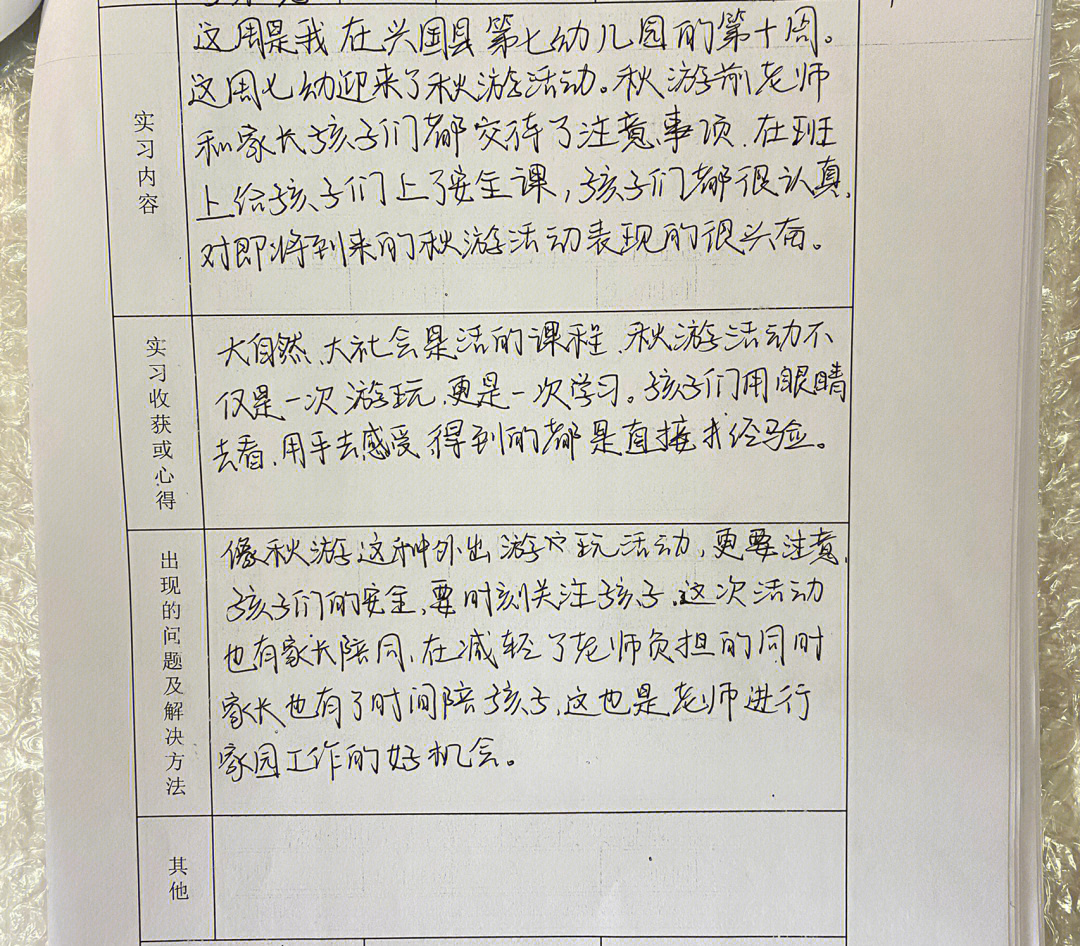 实习内容
这周是我在兴国县第七幼儿园的第十周。
这周七幼迎来了秋游活动。秋游前老师
和家长孩子们都交待了注意事项、在班
上给孩子们上了安全课，孩子们都很认真，
对即将到来的秋游活动表现的很兴奋。
实习收获或心得
大自然、大社会是活的课程、秋游活动不
仅是一次游玩，更是一次学习。孩子们用眼睛
去看、用手去感受、得到的都是直接性经验。
出现的问题及解决方法
像秋游这种外出游玩活动，更要注意
孩子们的安全，要时刻关注孩子、这次活动
也有家长陪同、在减轻了老师负担的同时
家长也有了时间陪孩子、这也是老师进行
家园工作的好机会。
其他